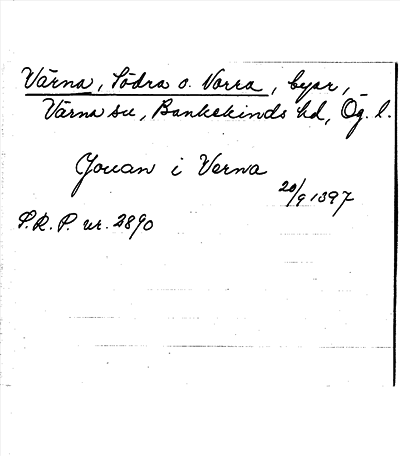 Värna, Södra o. Norra, byar,
Värna sn, Bankekinds hd, Ög. l.
Jouan i Verna
20/9 1397
S.R.P. nr. 2890